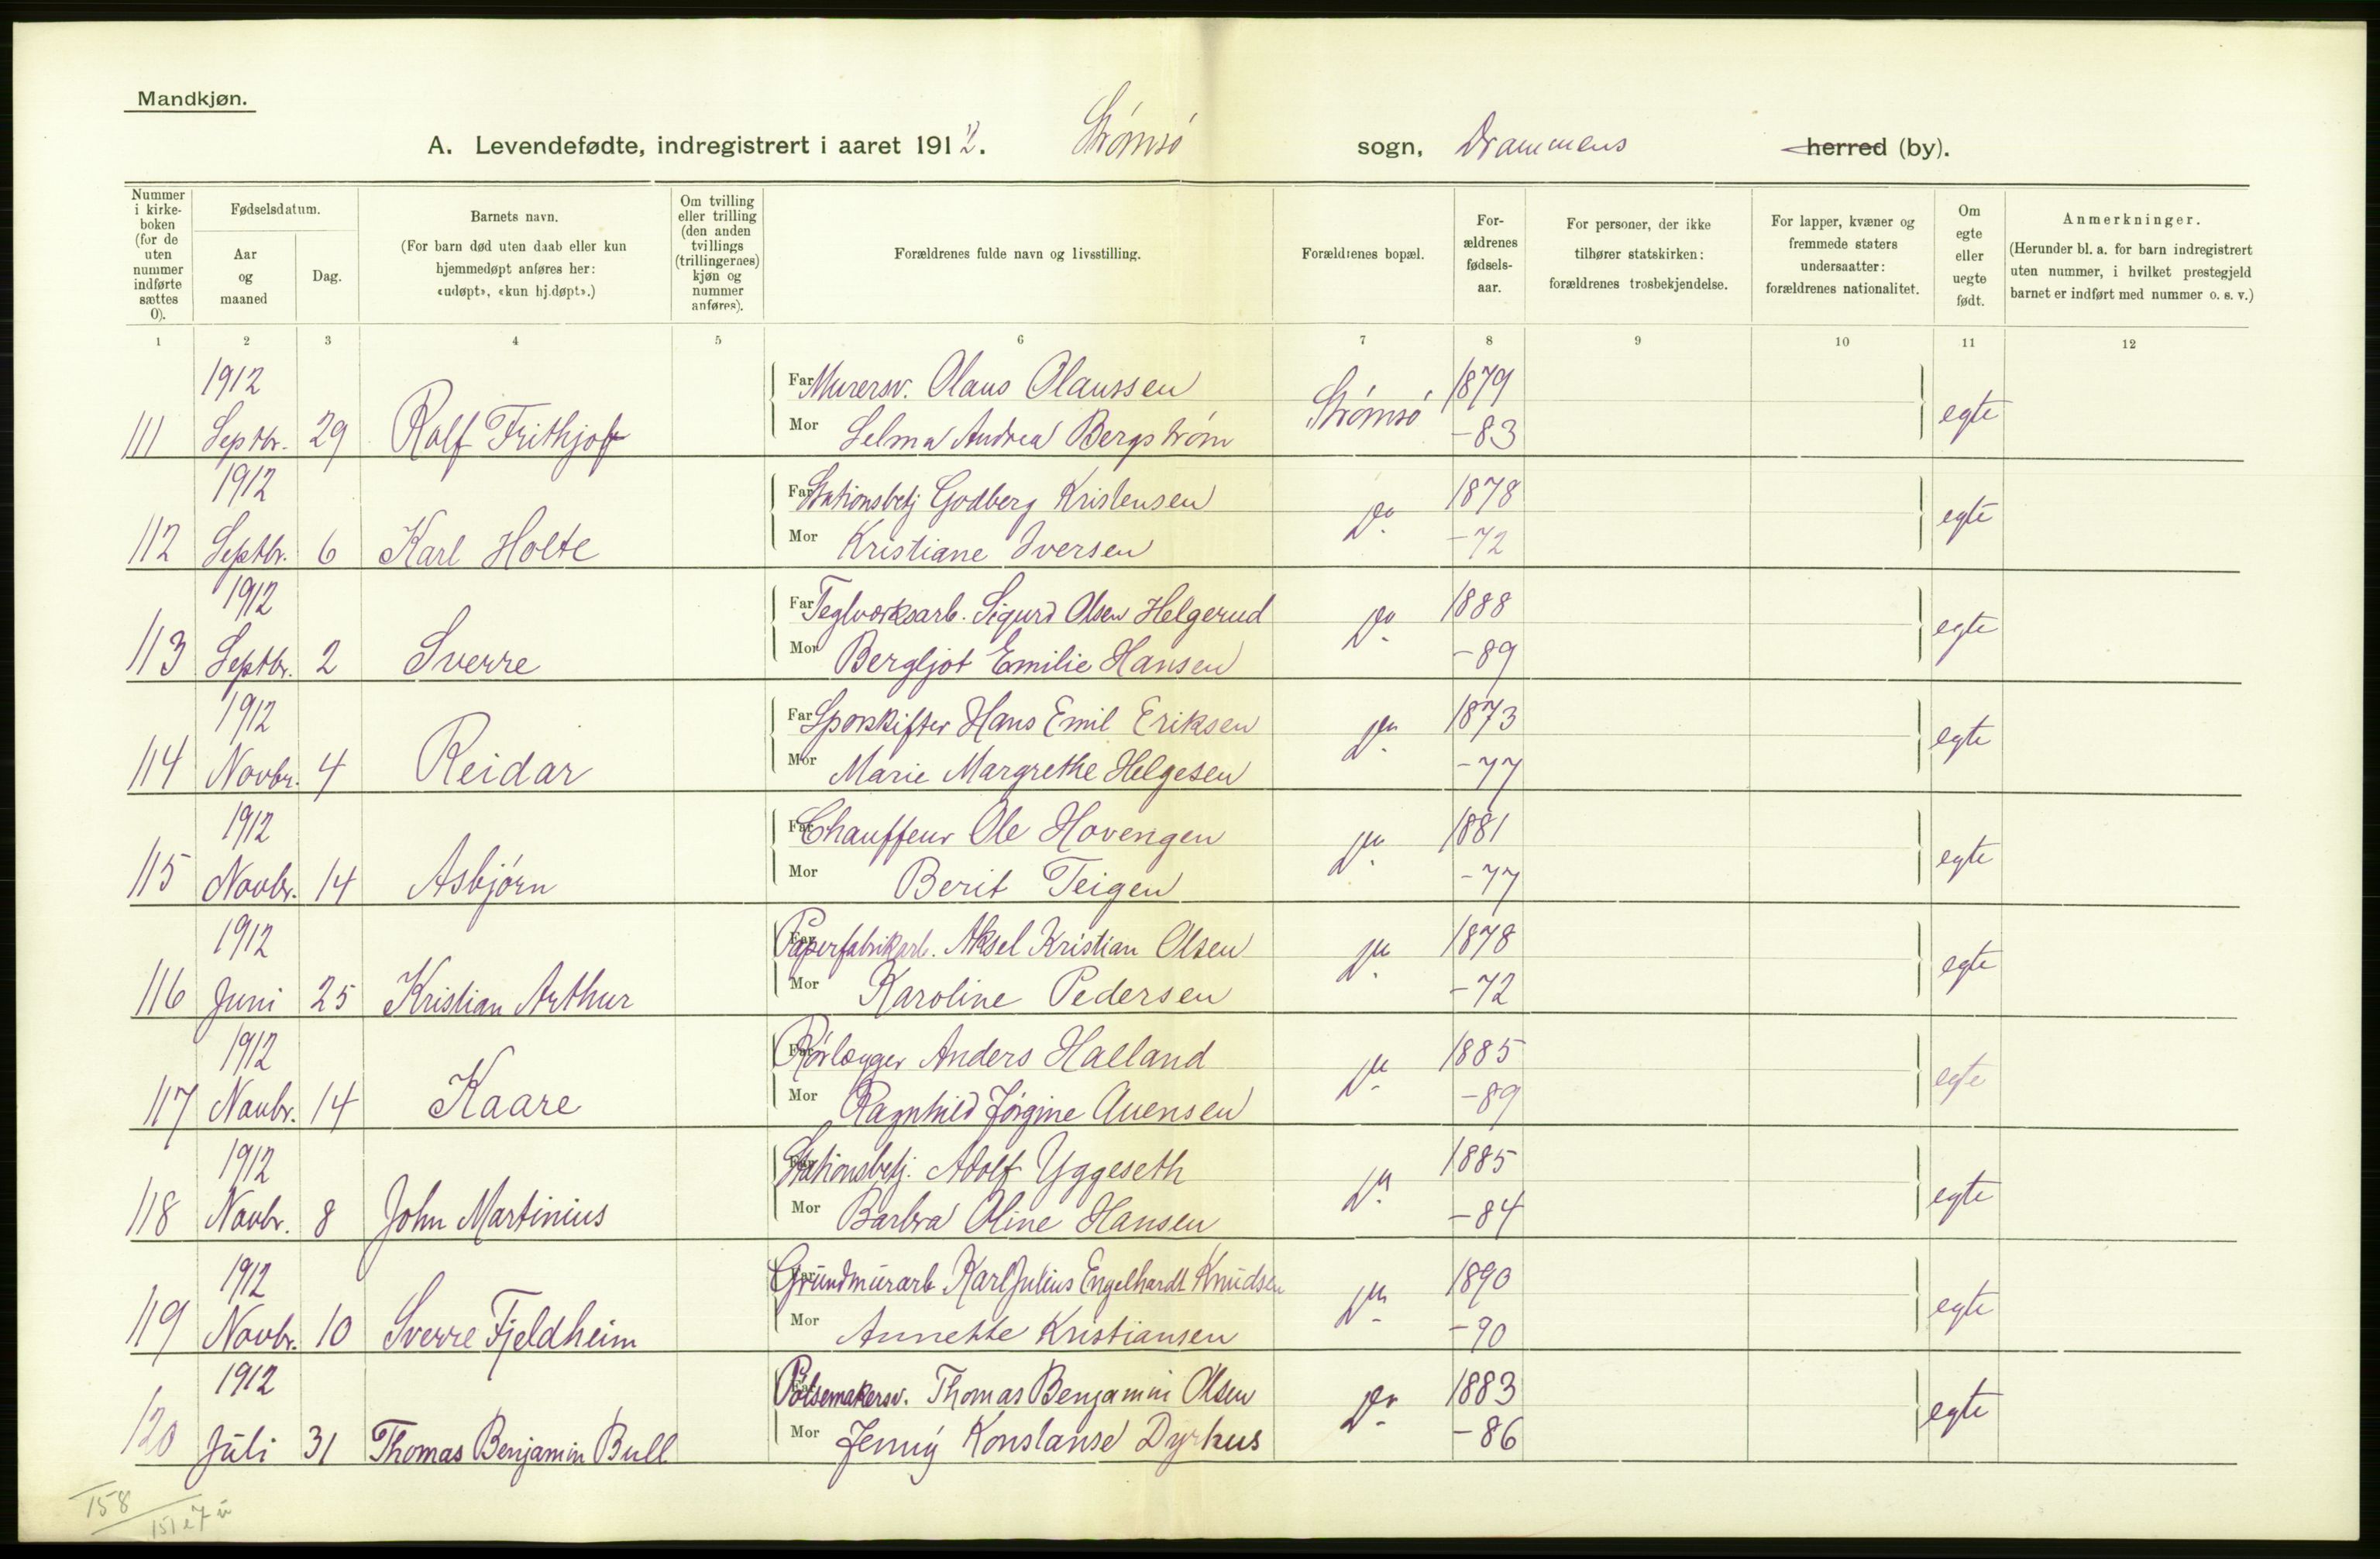 Mandkjøn.
A. Levendefødte, indregistrert i aaret 1912. Strømsø sogn, Drammens herred (by).
Nummer i kirke-boken (for de uten nummer indførte sættes 0).
Fødselsdatum.
Aar og maaned
Dag.
Barnets navn.
(For barn død uten daab eller kun hjemmedøpt anføres her: «udøpt», «kun hj.døpt».)
Om tvilling eller trilling (den anden tvillings (trillingernes) kjøn og nummer anføres).
Forældrenes fulde navn og livsstilling.
Forældrenes bopæl.
For-ældrenes fødsels-aar.
For personer, der ikke tilhører statskirken: forældrenes trosbekjendelse.
For lapper, kvæner og fremmede staters undersaatter: forældrenes nationalitet.
Om egte eller uegte født.
Anmerkninger.
(Herunder bl. a. for barn indregistrert uten nummer, i hvilket prestegjeld barnet er indført med nummer o. s. v.)
1 2 3 4 5 6 7 8 9 10 11 12
1912 Far Murersv. Olaus Olaussen Strømsø 1879
111 Septbr. 29 Rolf Frithjof Mor Selma Andrea Bergstrøm -83 egte
1912 Far Stationsbetj Godberg Kristensen do 1878
112 Septbr. 6 Karl Holte Mor Kristiane Iversen -72 egte
1912 Far Teglværksarb. Sigurd Olsen Helgerud do 1888
113 Septbr. 2 Sverre Mor Bergljot Emilie Hansen -89 egte
1912 Far Sporskifter Hans Emil Eriksen do 1873
114 Novbr. 4 Reidar Mor Marie Margrethe Helgesen -77 egte
1912 Far Chauffeur Ole Hovengen do 1881
115 Novbr. 14 Asbjørn Mor Berit Teigen -77 egte
1912 Far Papirfabrikarb. Aksel Kristian Olsen do 1878
116 Juni 25 Kristian Arthur Mor Karoline Pedersen -72 egte
1912 Far Rørlægger Anders Haeland do 1885
117 Novbr. 14 Kaare Mor Ragnhild Jørgine Auensen -89 egte
1912 Far Stationsbetj. Adolf Yggeseth do 1885
118 Novbr. 8 John Martinius Mor Barbra Oline Hansen -84 egte
1912 Far Grundmurarb Karl Julius Engelhardt Knudsen do 1890
119 Novbr. 10 Sverre Fjeldheim Mor Annette Kristiansen -90 egte
1912 Far Pølsemakersv. Thomas Benjamin Olsen do 1883
120 Juli 31 Thomas Benjamin Bull Mor Jenny Konstanse Dyrhus -86 egte
158
151 e 7 u